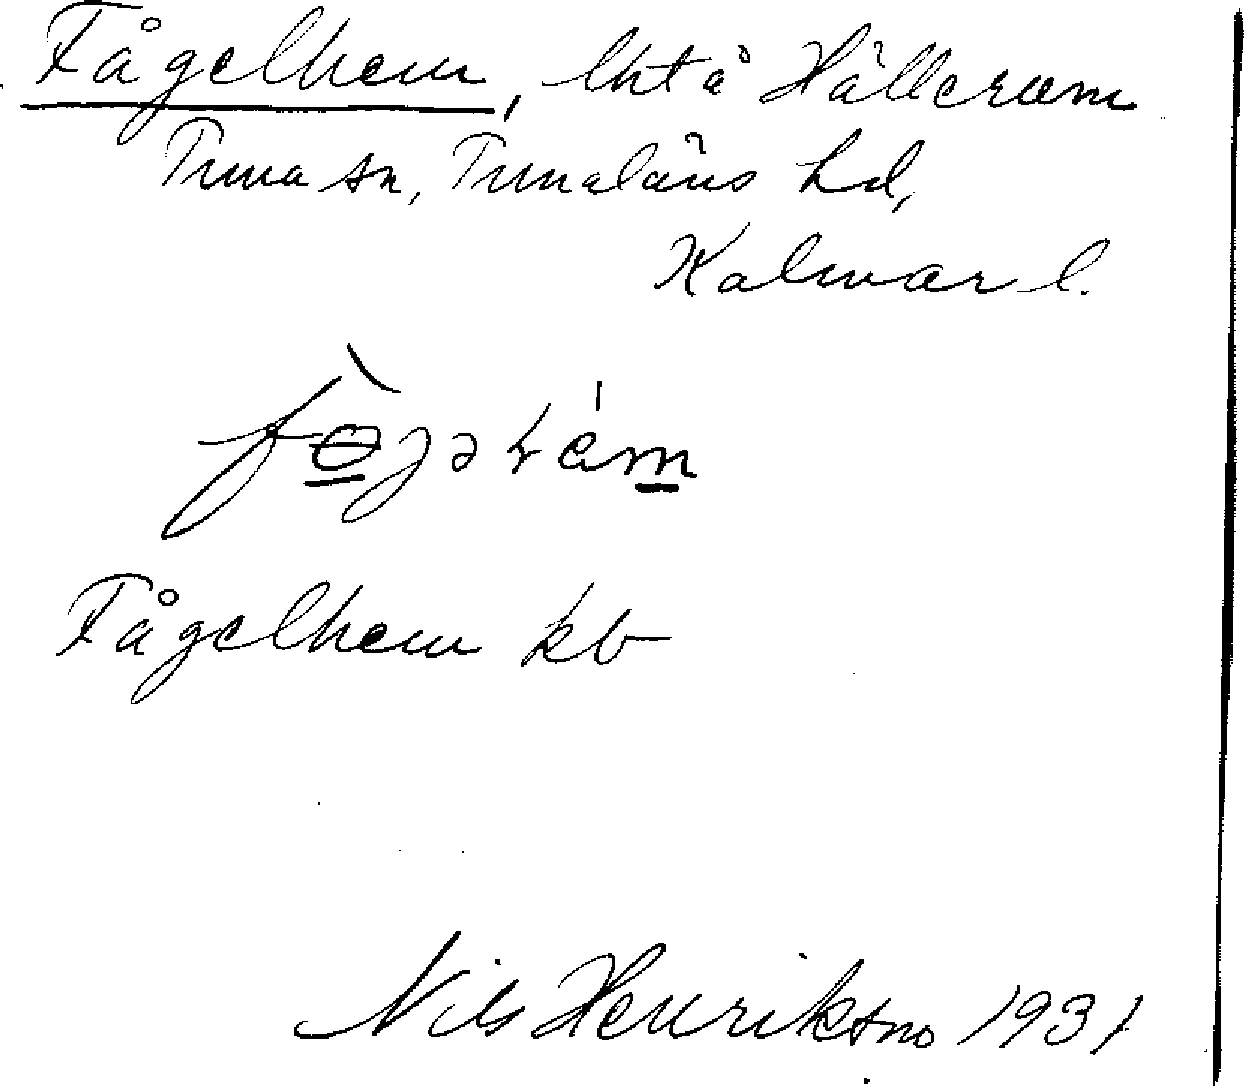 Fågelhem, lht å Hälleram
Tuna sn, Tunaläns hd,
Kalmar l.
Fågelhem kb
Nils Henrikson 1931